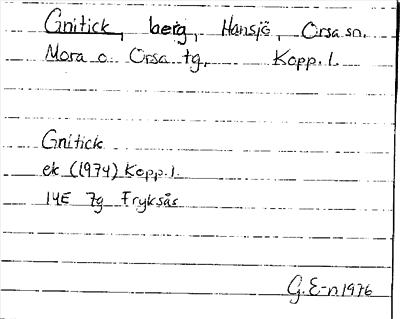 Gnitick, berg, Hansjö, Orsa sn.
Mora o Orsa tg. Kopp. l.
Gnitick
ek (1974) Kopp. l.
14E 7g Fryksås
G. E-n 1976